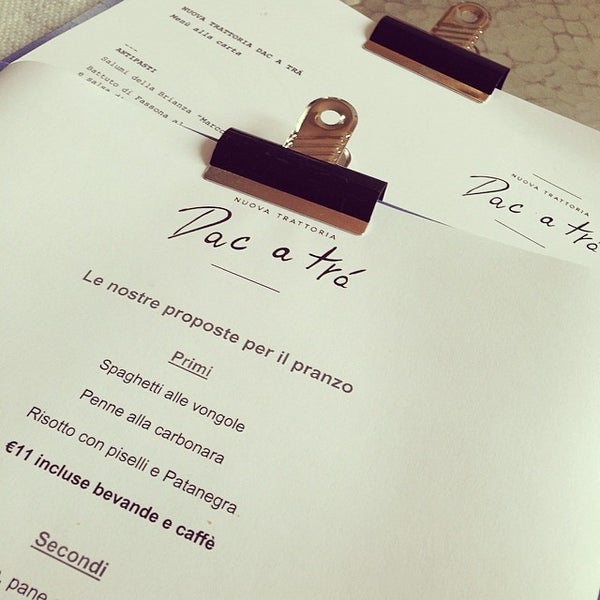 NUOVA TRATTORIA DAC A TRÁ
Menù alla carta
ANTIPASTI
Salumi della Brianza "Marco
Battuto di Fassona al
e salsa
NUOVA TRATTORIA
Dac a trá
NUOVA TRATTORIA
Dac a trá
Le nostre proposte per il pranzo
Primi
Spaghetti alle vongole
Penne alla carbonara
Risotto con piselli e Patanegra
€11 incluse bevande e caffè
Secondi
pane